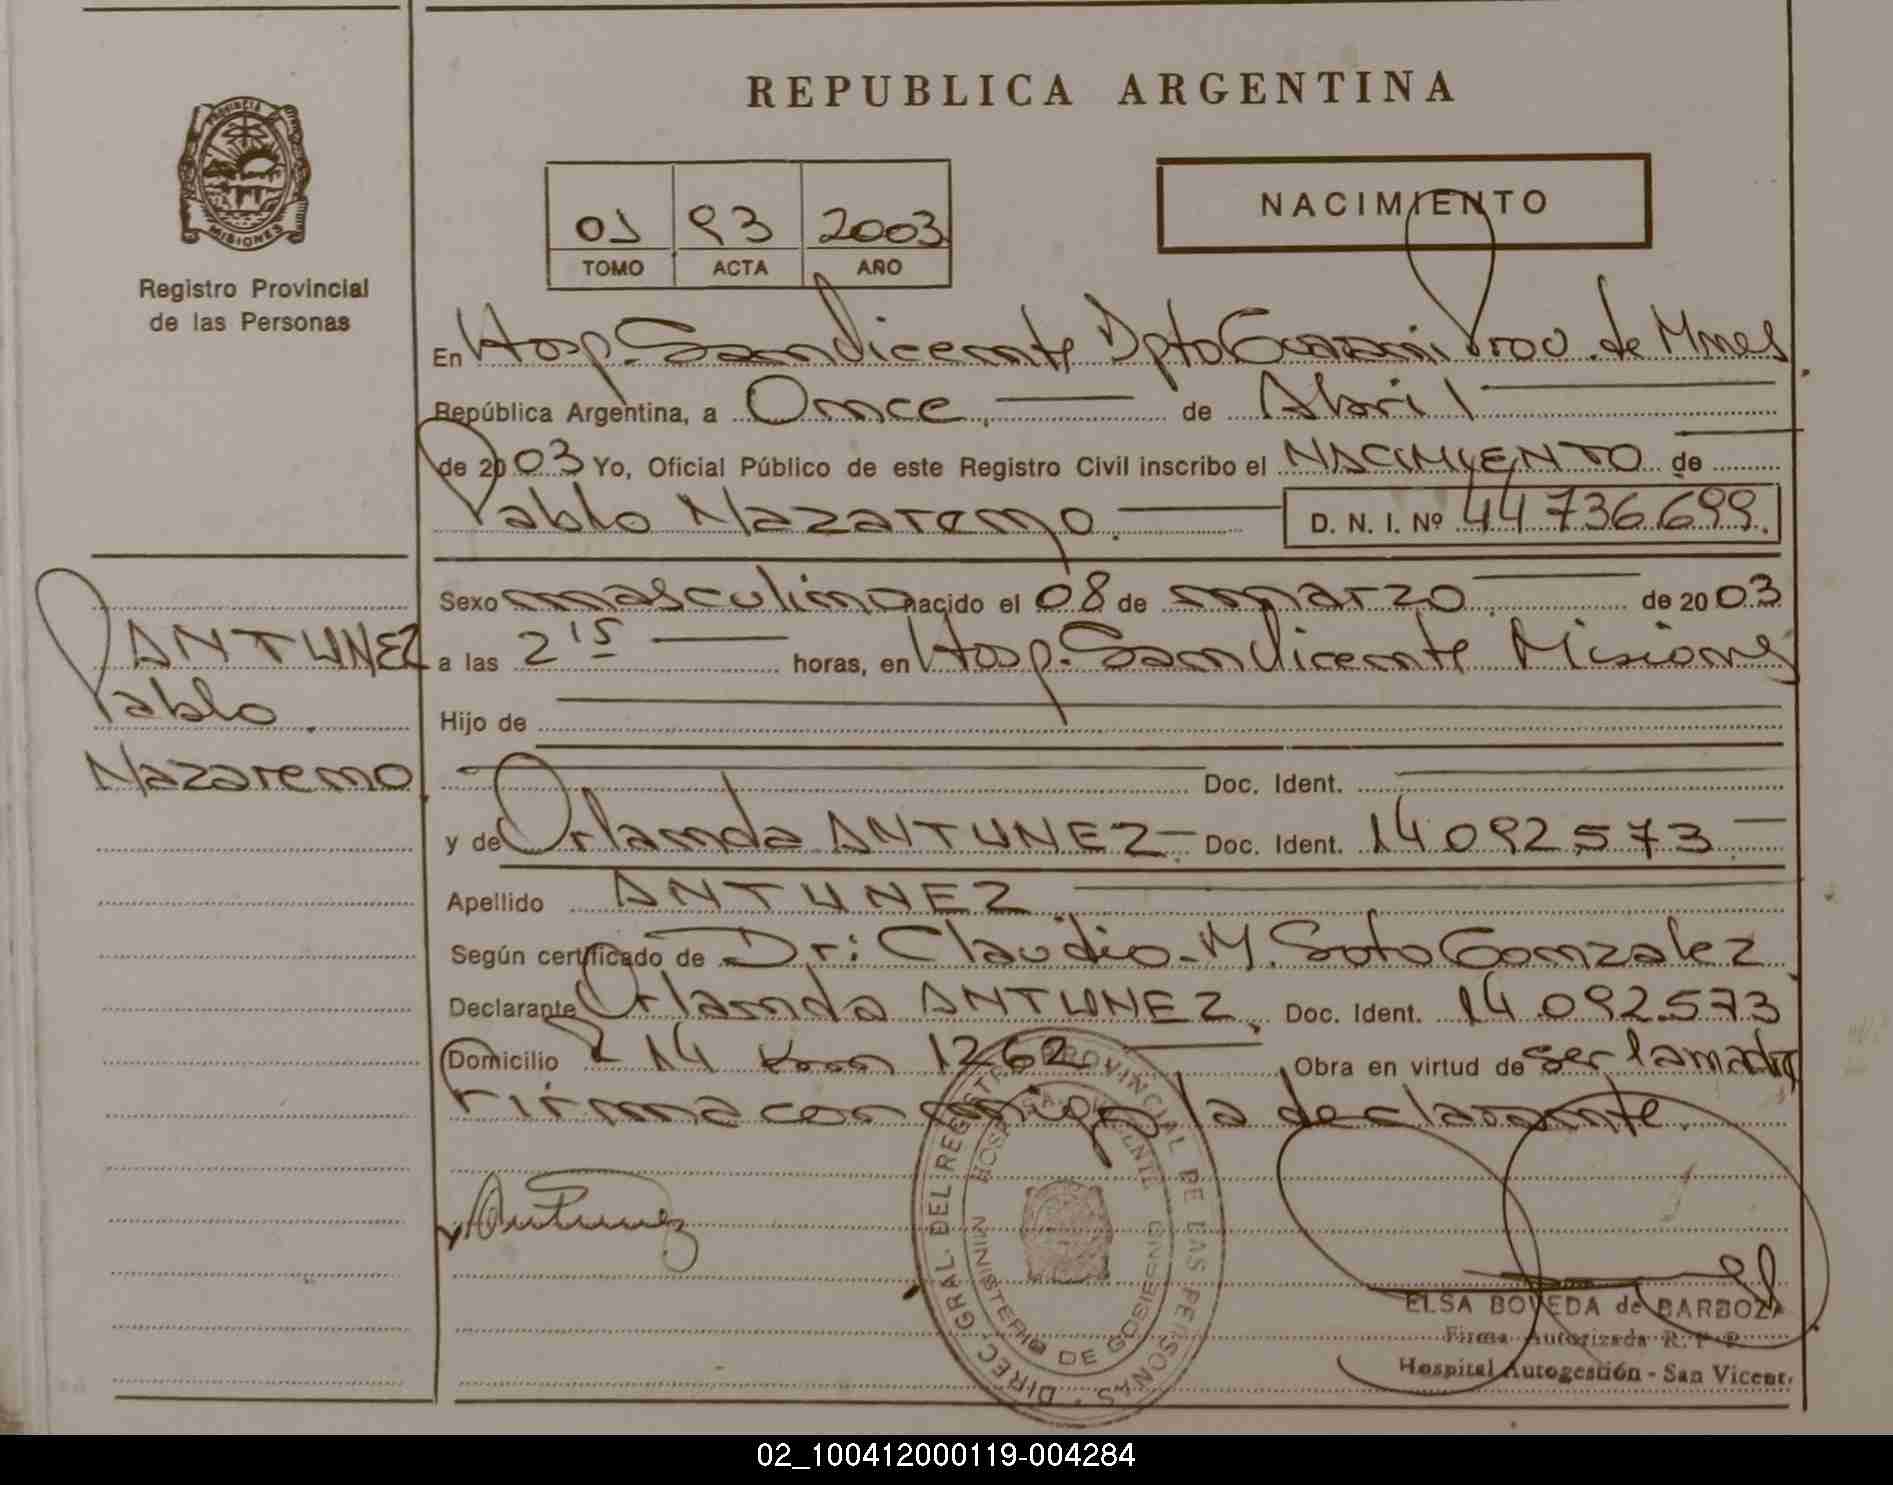 PROVINCIA
MISIONES
Registro Provincial
de las Personas
ANTUNEZ
Pablo
Nazareno
REPUBLICA ARGENTINA
01 93 2003
TOMO ACTA AÑO
NACIMIENTO
En Hosp. San Vicente Dpto Guarani Prov. de Mnes
República Argentina, a Once de Abril
de 2003 Yo, Oficial Público de este Registro Civil inscribo el NACIMIENTO de
Pablo Nazareno. D. N. I. Nº 44 736.699.
Sexo masculino nacido el 08 de marzo de 2003
a las 2 15 horas, en Hosp. San Vicente Misiones
Hijo de
Doc. Ident.
y de Orlanda ANTUNEZ Doc. Ident. 14 092 573
Apellido ANTUNEZ
Según certificado de Dr: Claudio M. Soto Gonzalez
Declarante Orlanda ANTUNEZ, Doc. Ident. 14 092.573
Domicilio 14 Km 1262 Obra en virtud de ser la madre
Firma con migo la declarante.
Antunez
DIREC. GRAL. DEL REGISTRO PROVINCIAL DE LAS PERSONAS
HOSP. SAN VICENTE
MINISTERIO DE GOBIERNO
ELSA BOVEDA de BARBOZA
Firma Autorizada R. P. P.
Hospital Autogestión - San Vicent.
02_100412000119-004284